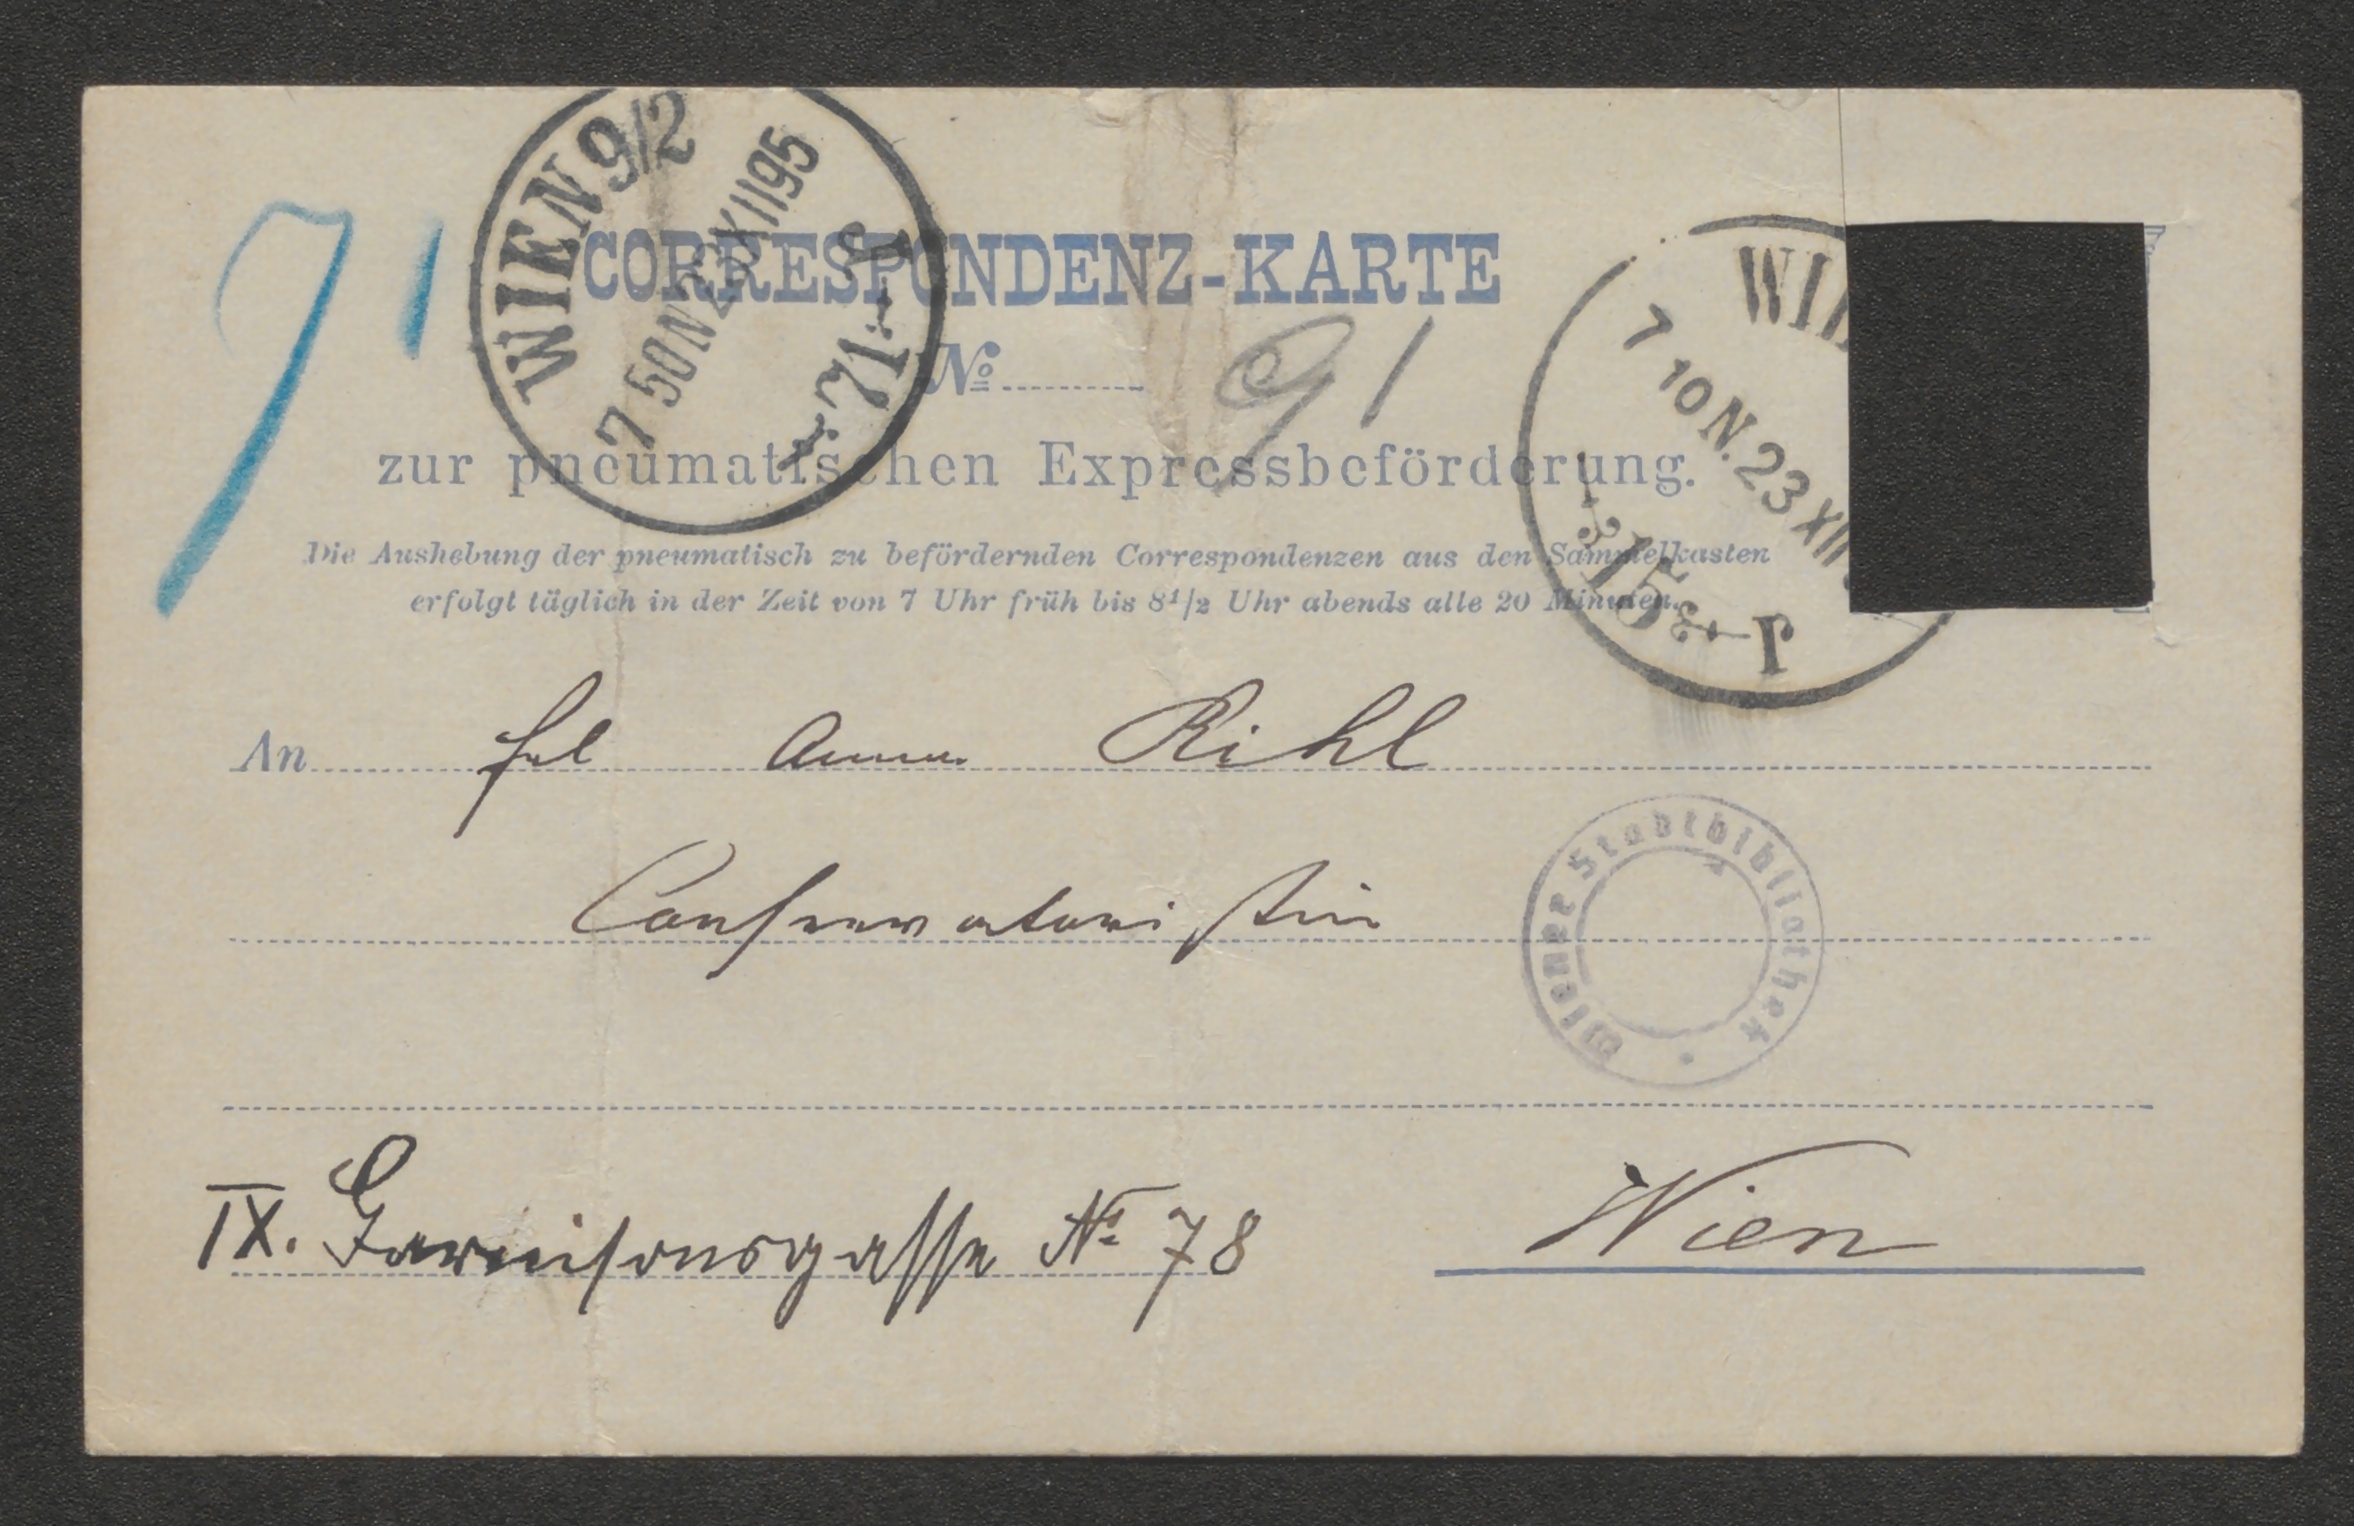 WIEN 9/2
7 50N 23 XII 95
71
CORRESPONDENZ-KARTE
No 91
zur pneumatischen Expressbeförderung.
7 10 N. 23 XII
15
J
Die Aushebung der pneumatisch zu befördernden Correspondenzen aus den Sammelkasten
erfolgt täglich in der Zeit von 7 Uhr früh bis 8 1/2 Uhr abends alle 20 Minuten.
An Frl Anna Rihl
Conservatoristin
Wiener Stadtbibliothek
IX. Garnisonsgasse No 78 Wien